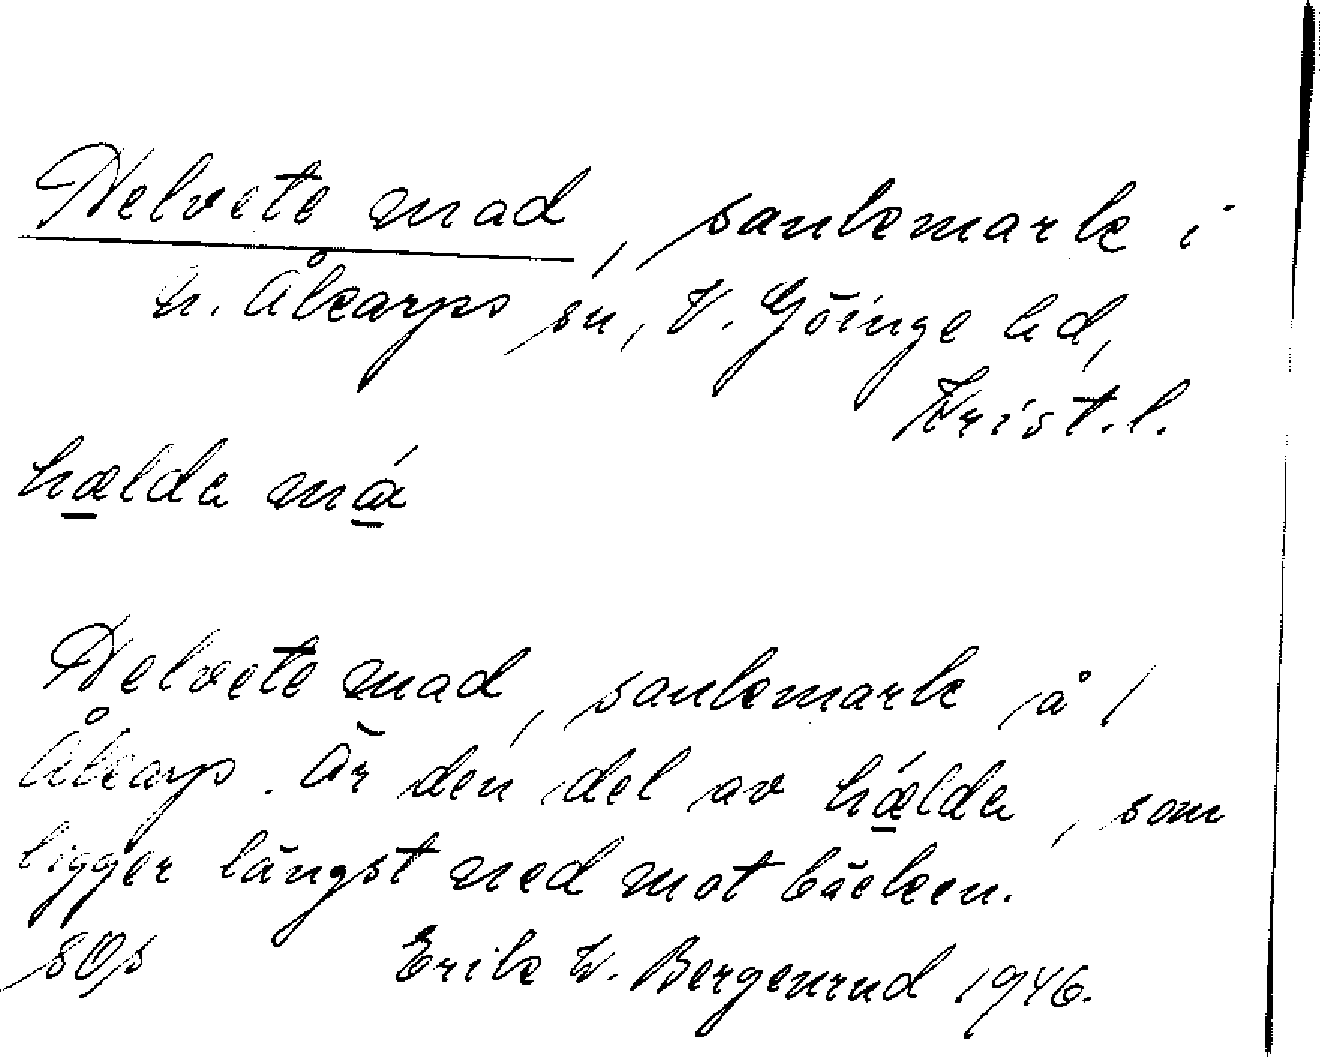 Helvete mad, sankmark i
N. Åkarps sn, V. Göinge hd,
Krist.l.
hælde má
Helvete mad, sankmark å /
Åkarp. Är den del av hælde, som
ligger längst ned mot bäcken.
Erik W. Bergenrud 1946.